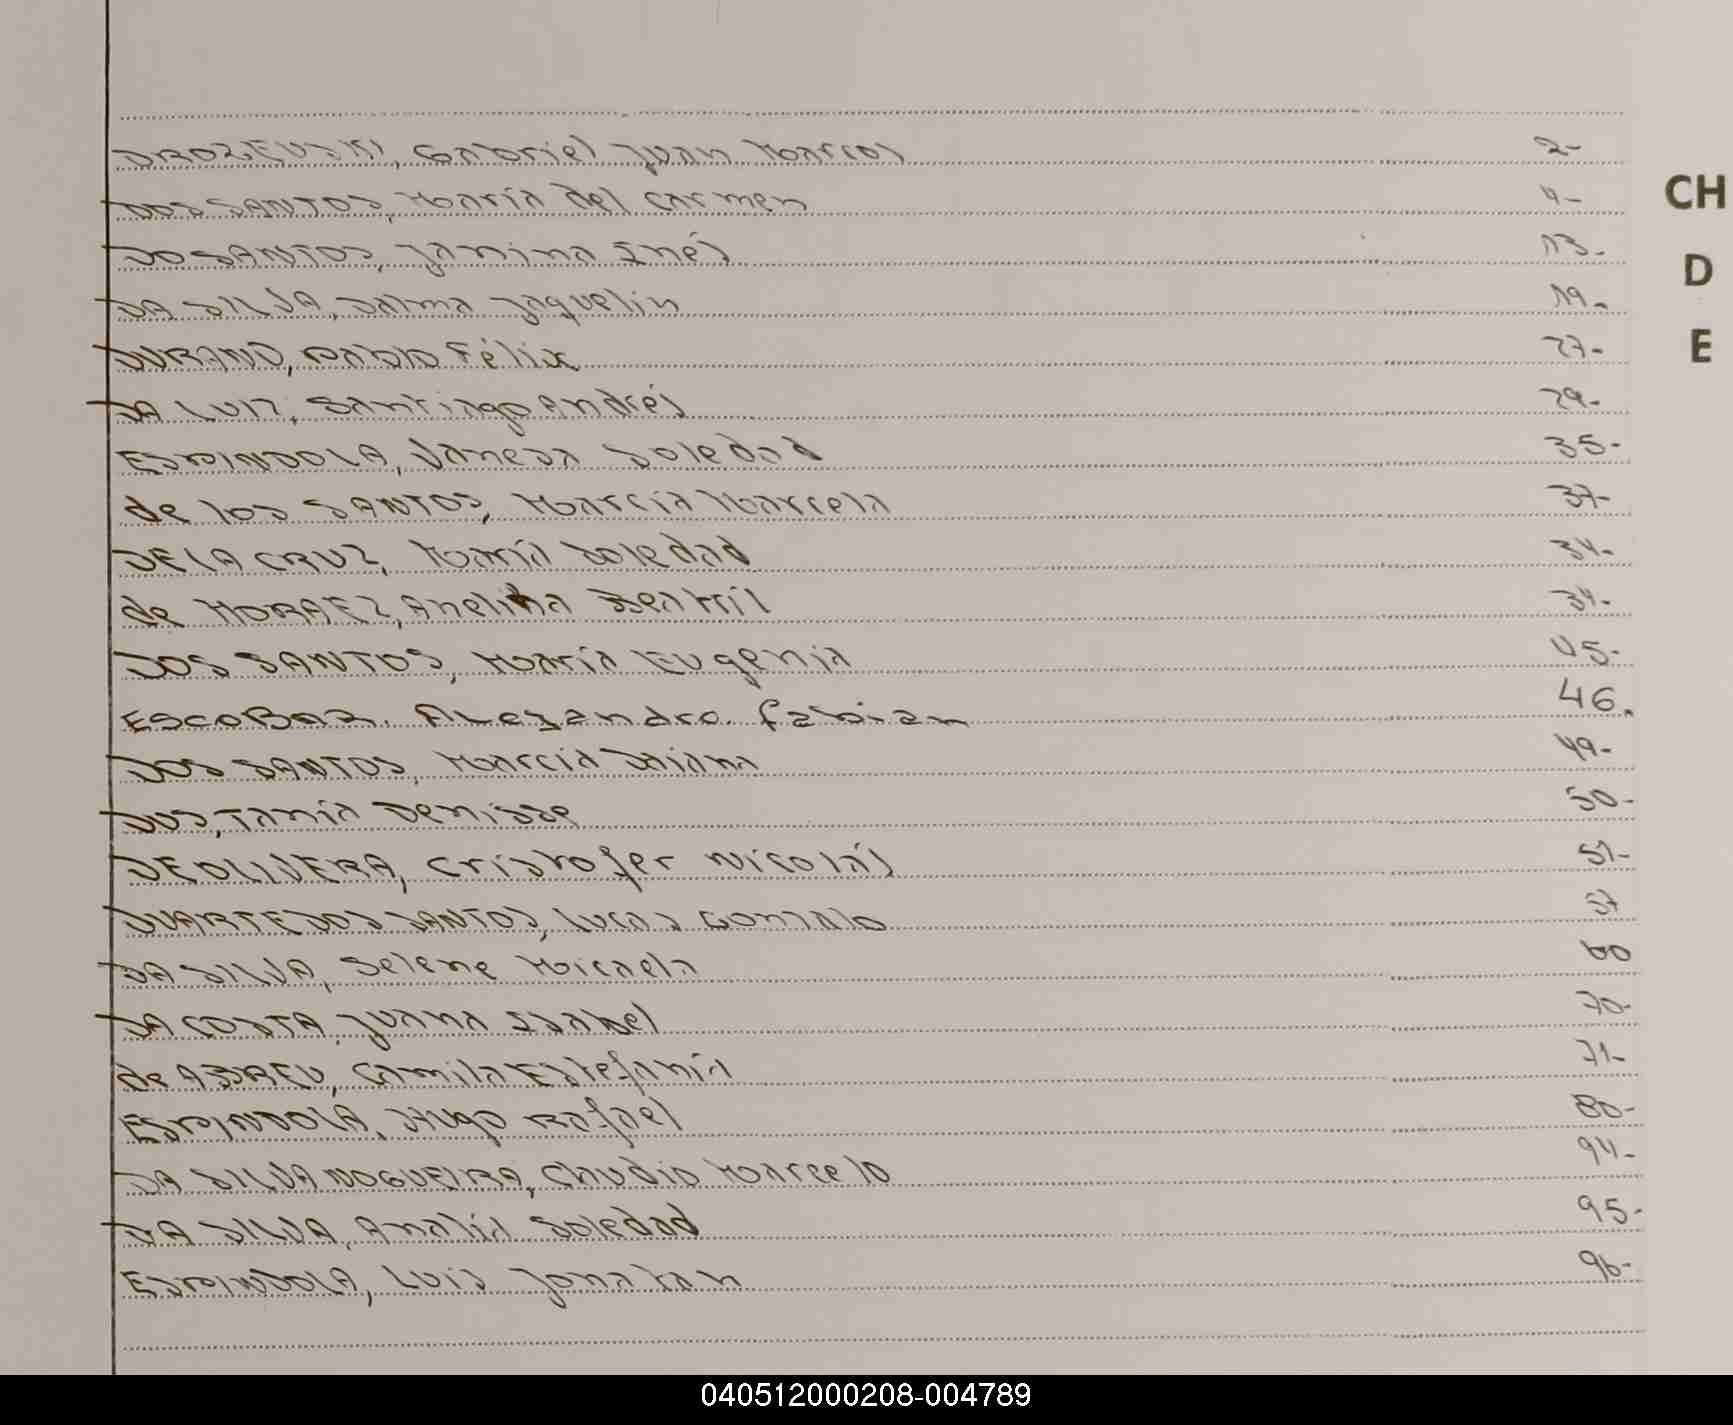 DROZEUSKI, Gabriel Juan Marcos 2-
DOS SANTOS, María del Carmen 4-
DOSANTOS, Janina Inés 13-
DA SILVA, Dalma Jaquelin 19-
DURAND, Pablo Félix 27-
DA LUIZ, Santiago Andrés 29-
ESPINDOLA, Vanesa Soledad 35-
de los SANTOS, Marcia Marcela 37-
DE LA CRUZ, María Soledad 34-
de MORAEZ, Anelina Beatriz 34-
DOS SANTOS, María Eugenia 45-
ESCOBAR. Alezandro. fabian 46.
DOS SANTOS, Marcia Daiana 49-
DUS, Tania Denisse 50-
DEOLIVERA, Cristofer Nicolás 51-
DUARTE DOS SANTOS, Lucas Gonzalo 57
DA SILVA, Selene Micaela 60
DA COSTA, Juana Isabel 70-
de ABREU, Camila Estefanía 71-
ESPINDOLA, Hugo Rafael 80-
DA SILVA NOGUEIRA, Claudio Marcelo 94-
DA SILVA, Analía Soledad 95-
ESPINDOLA, Luis Jonatan 96-
CH
D
E
040512000208-004789